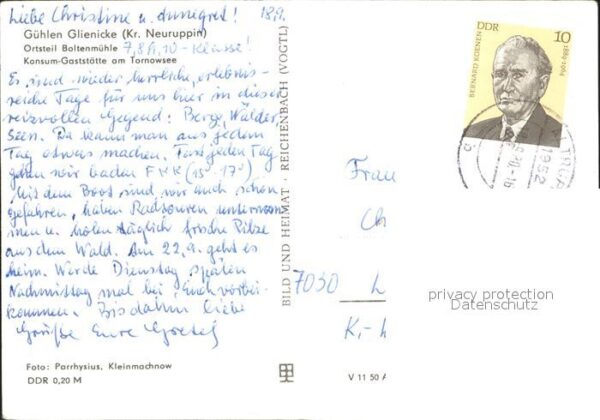 Liebe Christine u. Annegret! 18.9.
Gühlen Glienicke (Kr. Neuruppin)
Ortsteil Boltenmühle 7,8 A, 10 - Klasse!
Konsum-Gaststätte am Tornowsee
Es sind wieder herrliche, erlebnis-
reiche Tage für uns hier in dieser
reizvollen Gegend: Berge, Wälder,
Seen. Da kann man aus jedem
Tag etwas machen. Fast jeden Tag
gehen wir baden FKK (15°-17°)
Mit dem Boot sind wir auch schon
gefahren, haben Radtouren unternom-
men u. holen täglich frische Pilze
aus dem Wald. Am 22.9. geht es
heim. Werde Dienstag späten
Nachmittag mal bei Euch vorbei-
kommen. Bis dahin liebe
Grüße Eure
Foto: Parrhysius, Kleinmachnow
DDR 0,20 M
BILD UND HEIMAT REICHENBACH (VOGTL)
V 11 50 A
DDR 10
BERNARD KOENEN
1889-1964
1952
Frau
Ch
7030 L
K.-
privacy protection
Datenschutz